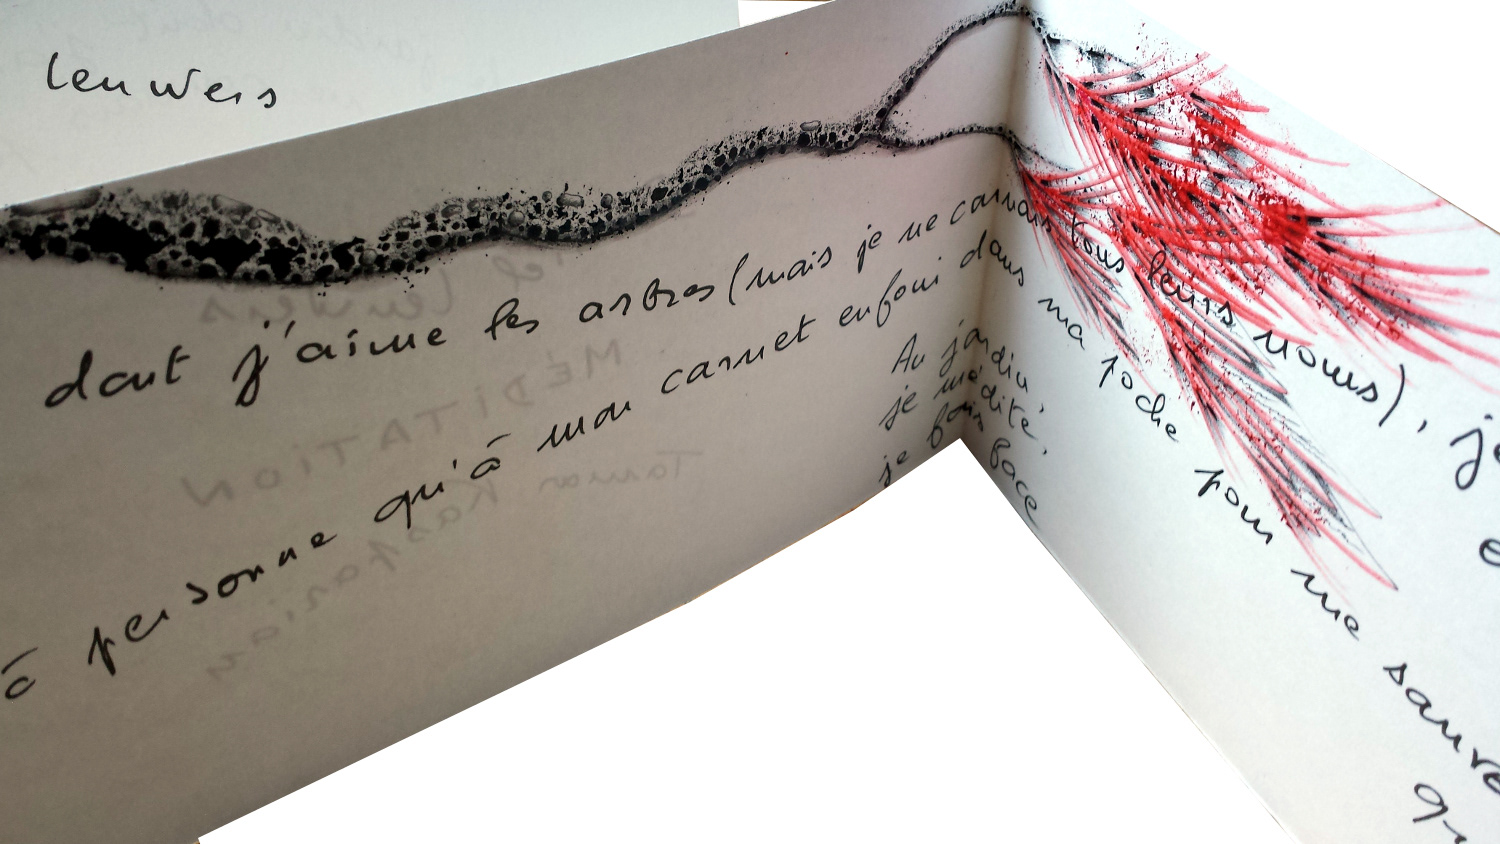 leuwers
dont j'aime les arbres (mais je ne connais tous leurs noms), je
à personne qu'à mon carnet enfoui dans ma poche pour me sauve
Au jardin,
je médite,
je fais face
MÉDITATION
Tamar Kasparian